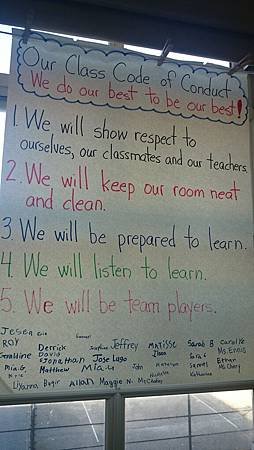 Our Class Code of Conduct
We do our best to be our best!
1. We will show respect to
ourselves, our classmates and our teachers.
2. We will keep our room neat
and clean.
3. We will be prepared to learn.
4. We will listen to learn.
5. We will be team players.
Jesca Eva
ROY Derrick Jeffrey Matisse Sarah B Caroline
Geraldine David Ms. Ennis
Jonathan Jose Lugo Sara G Ethan
Mia.G. Matthew Mia.L John Samuel Ms. Chery
Eric Nicholas Katherine
Liyanna Allan Maggie N. McCauley